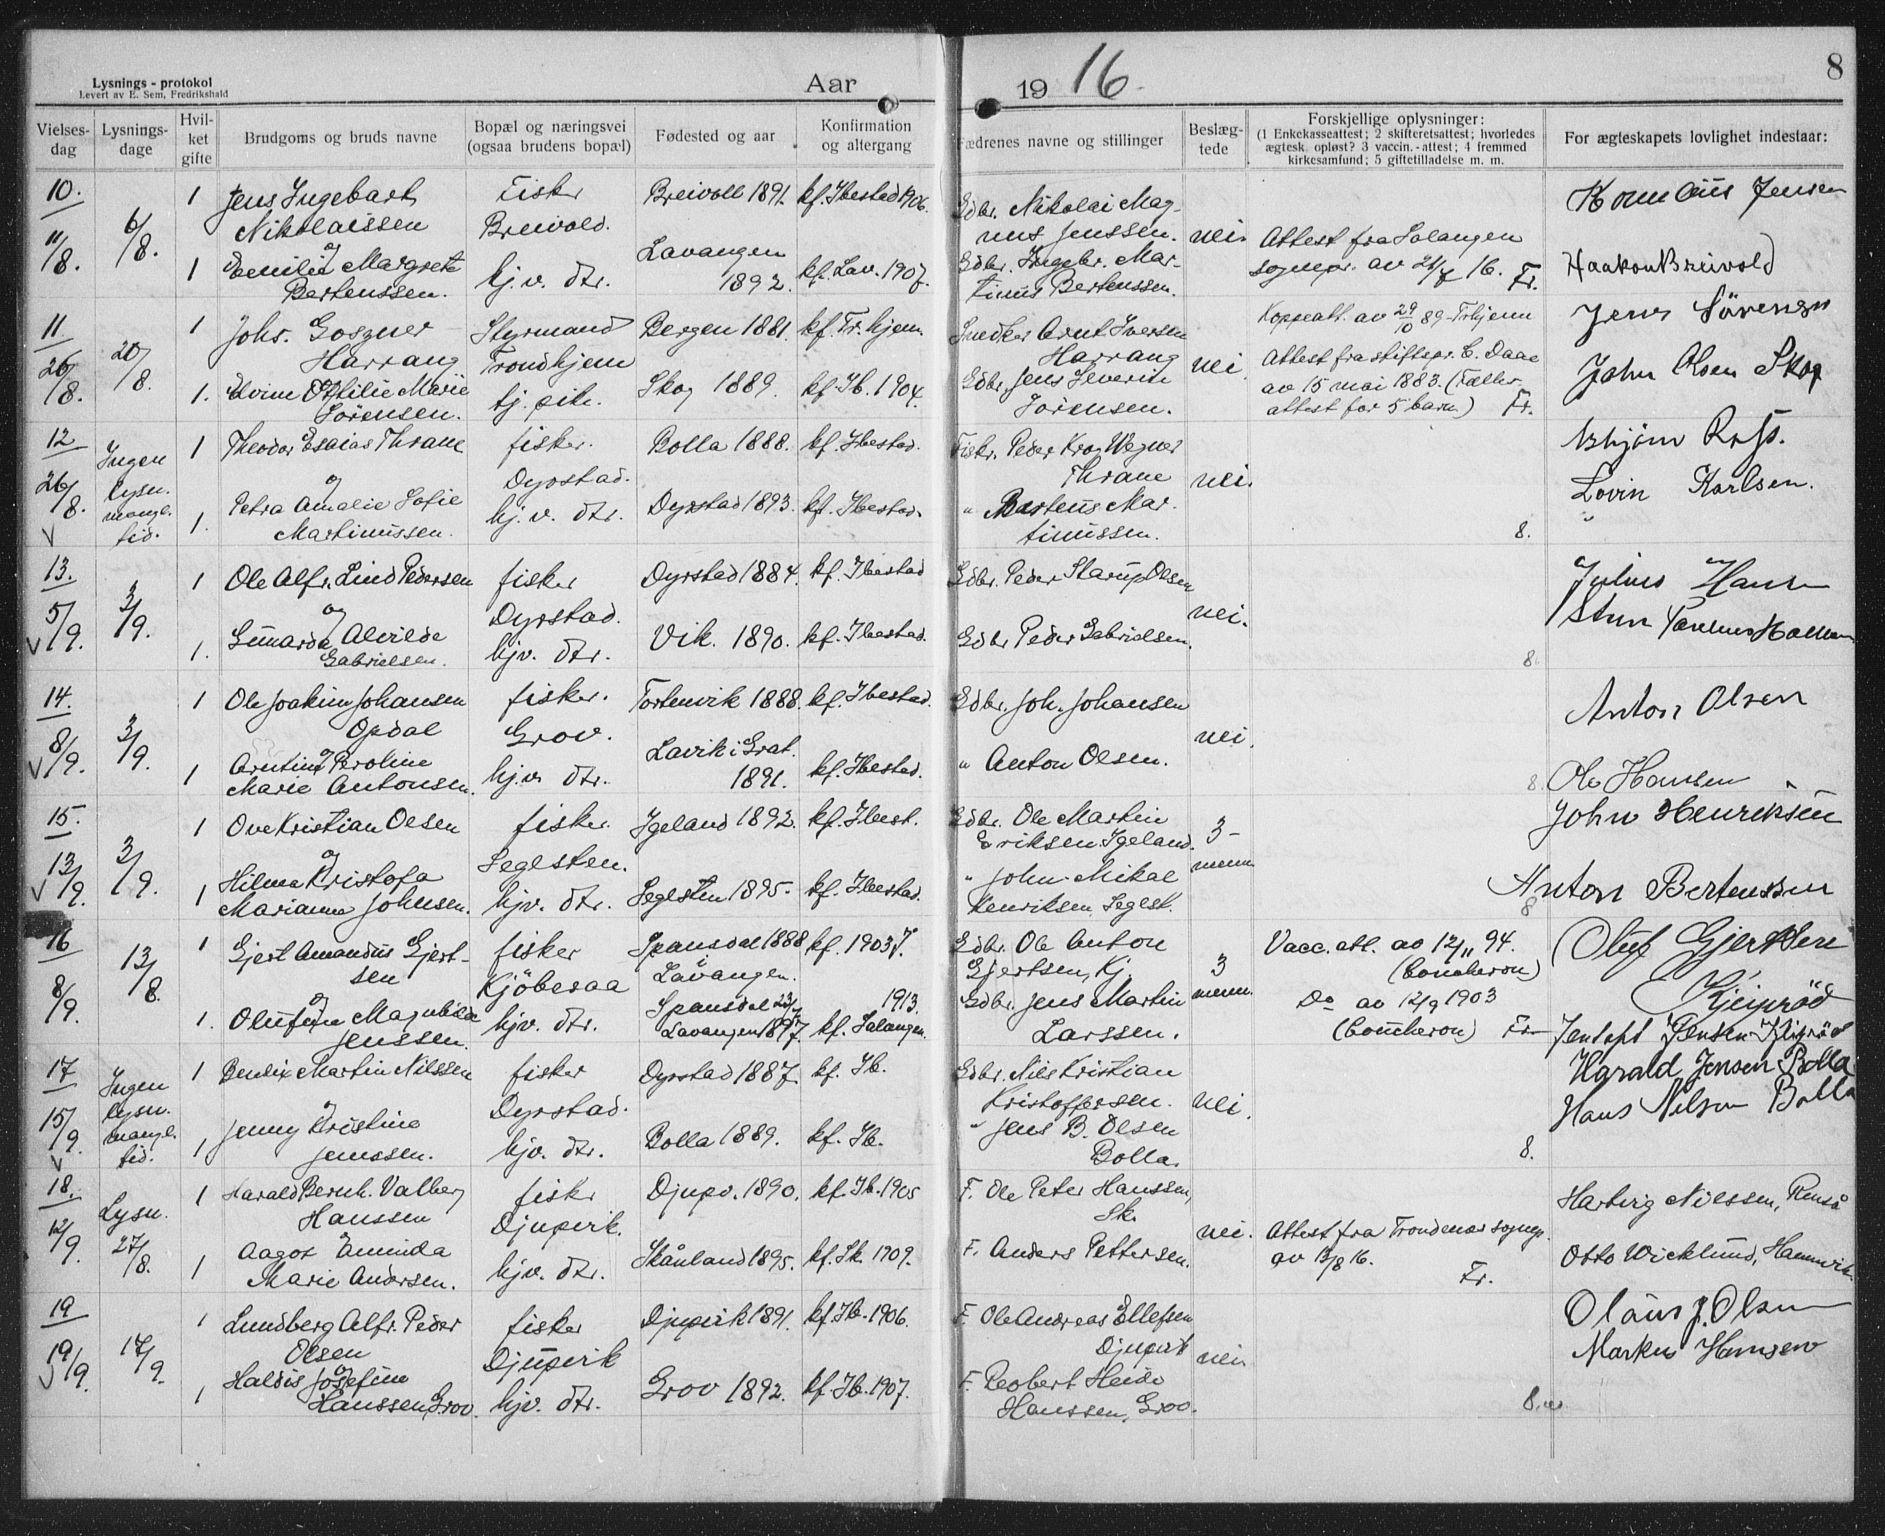 Lysnings - protokol
Levert av E. Sem, Fredrikshald
Aar
1916.
8
Vielses-dag
Lysnings-dage
Hvil-ket gifte
Brudgoms og bruds navne
Bopæl og næringsvei (ogsaa brudens bopæl)
Fødested og aar
Konfirmation og altergang
Fædrenes navne og stillinger
Beslæg-tede
Forskjellige oplysninger:
(1 Enkekasseattest; 2 skifteretsattest; hvorledes
ægtesk. opløst? 3 vaccin.-attest; 4 fremmed
kirkesamfund; 5 giftetilladelse m. m.
For ægteskapets lovlighet indestaar:
10.
11/8.
6/8.
1 Jens Ingebart
Nikolaissen
og
1 Emilie Margrete
Bertenssen.
Fisker
Breivold.
hj.v. dtr.
Breivoll 1891.
Lavangen
1892.
kf. Ibestad 1906.
kf. Lav. 1907.
Gdbr. Nikolai Mag-
nus Jenssen.
Gdbr. Ingebr. Mar-
tinus Bertenssen.
nei.
Attest fra Salangen
sognepr. av 21/7 16. Fr.
Jensen
Haakon Breivold
11
26/8.
20/8.
1 Johs. Goszner
Harrang
1. Elvine Ottilie Marie
Sörensen.
Styrmand
Trondhjem
tj. pike.
Bergen 1881.
Skog 1889.
kf. Tr.hjem.
kf. Ib. 1904.
Snedker Arnt Iversen
Harrang
Gdbr. Jens Severin
Sörensen.
nei.
Koppeatt. av 29/10 89 - Trhjem
Attest fra stiftspr. C. Daae
av 15 mai 1883. (Fælles-
attest for 5 barn) Fr.
Jens Sörensen
John Olsen Skog
12
26/8.
V
Ingen
lysn.
mangl.
tid.
1 Theodor Esaias Thrane
og
1. Petra Amalie Sofie
Martinussen.
fisker.
Dyrstad.
hj. v. dtr.
Bolla 1888.
Dyrstad 1893.
kf. Ibestad.
kf. Ibestad.
Fiskr. Peder Krog Wegner
Thrane
" Marteus Mar-
tinussen.
nei.
8.
Lovin Karlsen.
"
13.
5/9.
V
3/9.
1 Ole Alfr. Lind Pedersen
og
1. Gunarda Alvilde
Gabrielsen.
fisker
Dyrstad.
hjv. dtr.
Dyrstad 1884.
Vik. 1890.
kf. Ibestad
kf. Ibestad.
Gdbr. Peder Starup Olsen
Gdbr Peder Gabrielsen.
nei.
8.
Julius Hansen
14.
8/9.
V
3/9.
1 Ole Joakim Johansen
Opdal
og
1 Arntine Peroline
Marie Antonsen.
fisker.
Grov.
hj.v. dtr.
Tortenvik 1888.
Lavik i Grat.
1891.
kf. Ibestad.
kf. Ibestad.
Gdbr. Joh. Johansen
" Anton Olsen.
nei.
8.
Anton Olsen
Ole Hansen
15.
13/9.
V
3/9.
1 Ove Kristian Olsen
og
1 Hilma Kristofa
Marianne Johnsen.
fisker.
Seglsten.
hjv. dtr.
Igeland 1892.
Seglsten 1895.
kf. Ibest.
kf. Ibestad.
Gdbr. Ole Martin
Eriksen Igeland.
" John Mikal
Henriksen, Segest.
3-
menn.
8
John Henriksen
Anton Bertenssen
16
8/9.
13/8.
1 Gjert Amandus Gjert-
sen
og
1. Olufine Magnhilde
Jenssen.
fisker
Kjöbesaa
hjv. dtr.
Spansdal 1888
i
Lavangen.
Spansdal 23/7
Lavangen 1897.
kf. 1903 I.
1913.
kf. Salangen.
Gdbr. Ole Anton
Gjertsen, Kj.
Gdbr. Jens Martin
Larssen.
3
menn.
Vacc. att. av 12/11 94.
(Boucheron)
Do av 12/9 1903
(Boucheron) Fr.
Oluf Gjertsen
Jentoft Jensen
17
15/9.
V
Ingen
lysn.
mangl.
tid.
1 Bendix Martin Nilssen
og
1 Jenny Kristine
Jenssen.
fisker
Dyrstad.
hjv. dtr.
Dyrstad 1887.
Bolla 1889.
kf. Ib.
kf. Ib.
Gdbr. Nils Kristian
Kristoffersen.
" Jens B. Olsen
Bolla.
nei.
8.
Harald Jensen Bolla
Hans Nilsen Bolla
18.
12/9.
Lysn.
27/8.
1 Harald Bernh. Valberg
Hanssen
1 Aagot Eminda
Marie Andersen.
fisker
Djupvik.
hjv. dtr.
Djupv. 1890.
Skånland 1895.
kf. Ib. 1905
kf. Sk. 1909.
F. Ole Peter Hanssen,
Sk.
F. Anders Pettersen.
nei.
Attest fra Trondenes sognep.
av 13/8 16.
Fr.
Hartvig Nilssen, Renså
Otto Wicklund, Hamnvik
19
19/9.
V
17/9.
1 Lundberg Alfr. Peder
Olsen
og
1 Haldis Josefine
Hanssen, Grov.
fisker
Djupvik
hjv. dtr.
Djupvik 1891.
Grov 1892.
kf. Ib. 1906.
kf. Ib. 1907.
F. Ole Andreas Ellefsen
Djupvik
F. Robert Heide
Hanssen, Grov.
nei
8.
Olaus J. Olsen
Markus Hansen